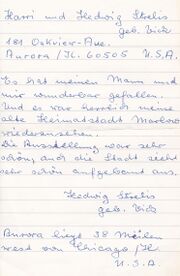 Harri und Hedwig Strelis
geb. Vick
181 Oakview-Ave.
Aurora / Ill. 60505 U.S.A.
Es hat meinen Mann und
mir wunderbar gefallen.
Und es war herrlich meine
alte Heimatstadt Markow
wiederzusehen.
Die Ausstellung war sehr
schön, auch die Stadt sieht
sehr schön aufgebaut aus.
Hedwig Strelis
geb. Vick
Aurora liegt 38 Meilen
west von Chicago / Ill.
U.S.A.